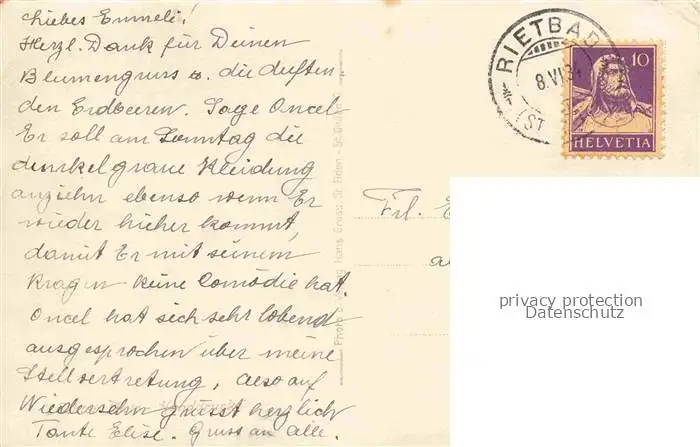 Liebes Emmeli!
Herzl. Dank für Deinen
Blumengruss u. die duften
den Erdbeeren. Sage Oncel
Er soll am Sonntag die
dunkelgraue Kleidung
anziehn ebenso wenn Er
wieder hieher kommt,
damit Er mit seinem
Kragen keine Comödie hat.
Oncel hat sich sehr lobend
ausgesprochen über meine
Stellvertretung, also auf
Wiedersehn grüsst herzlich
Tante Elise. Gruss an alle.
Photo Hans Gross, St. Gallen
RIETBAD
8.VI.3
(ST
10
HELVETIA
Frl. E
privacy protection
Datenschutz